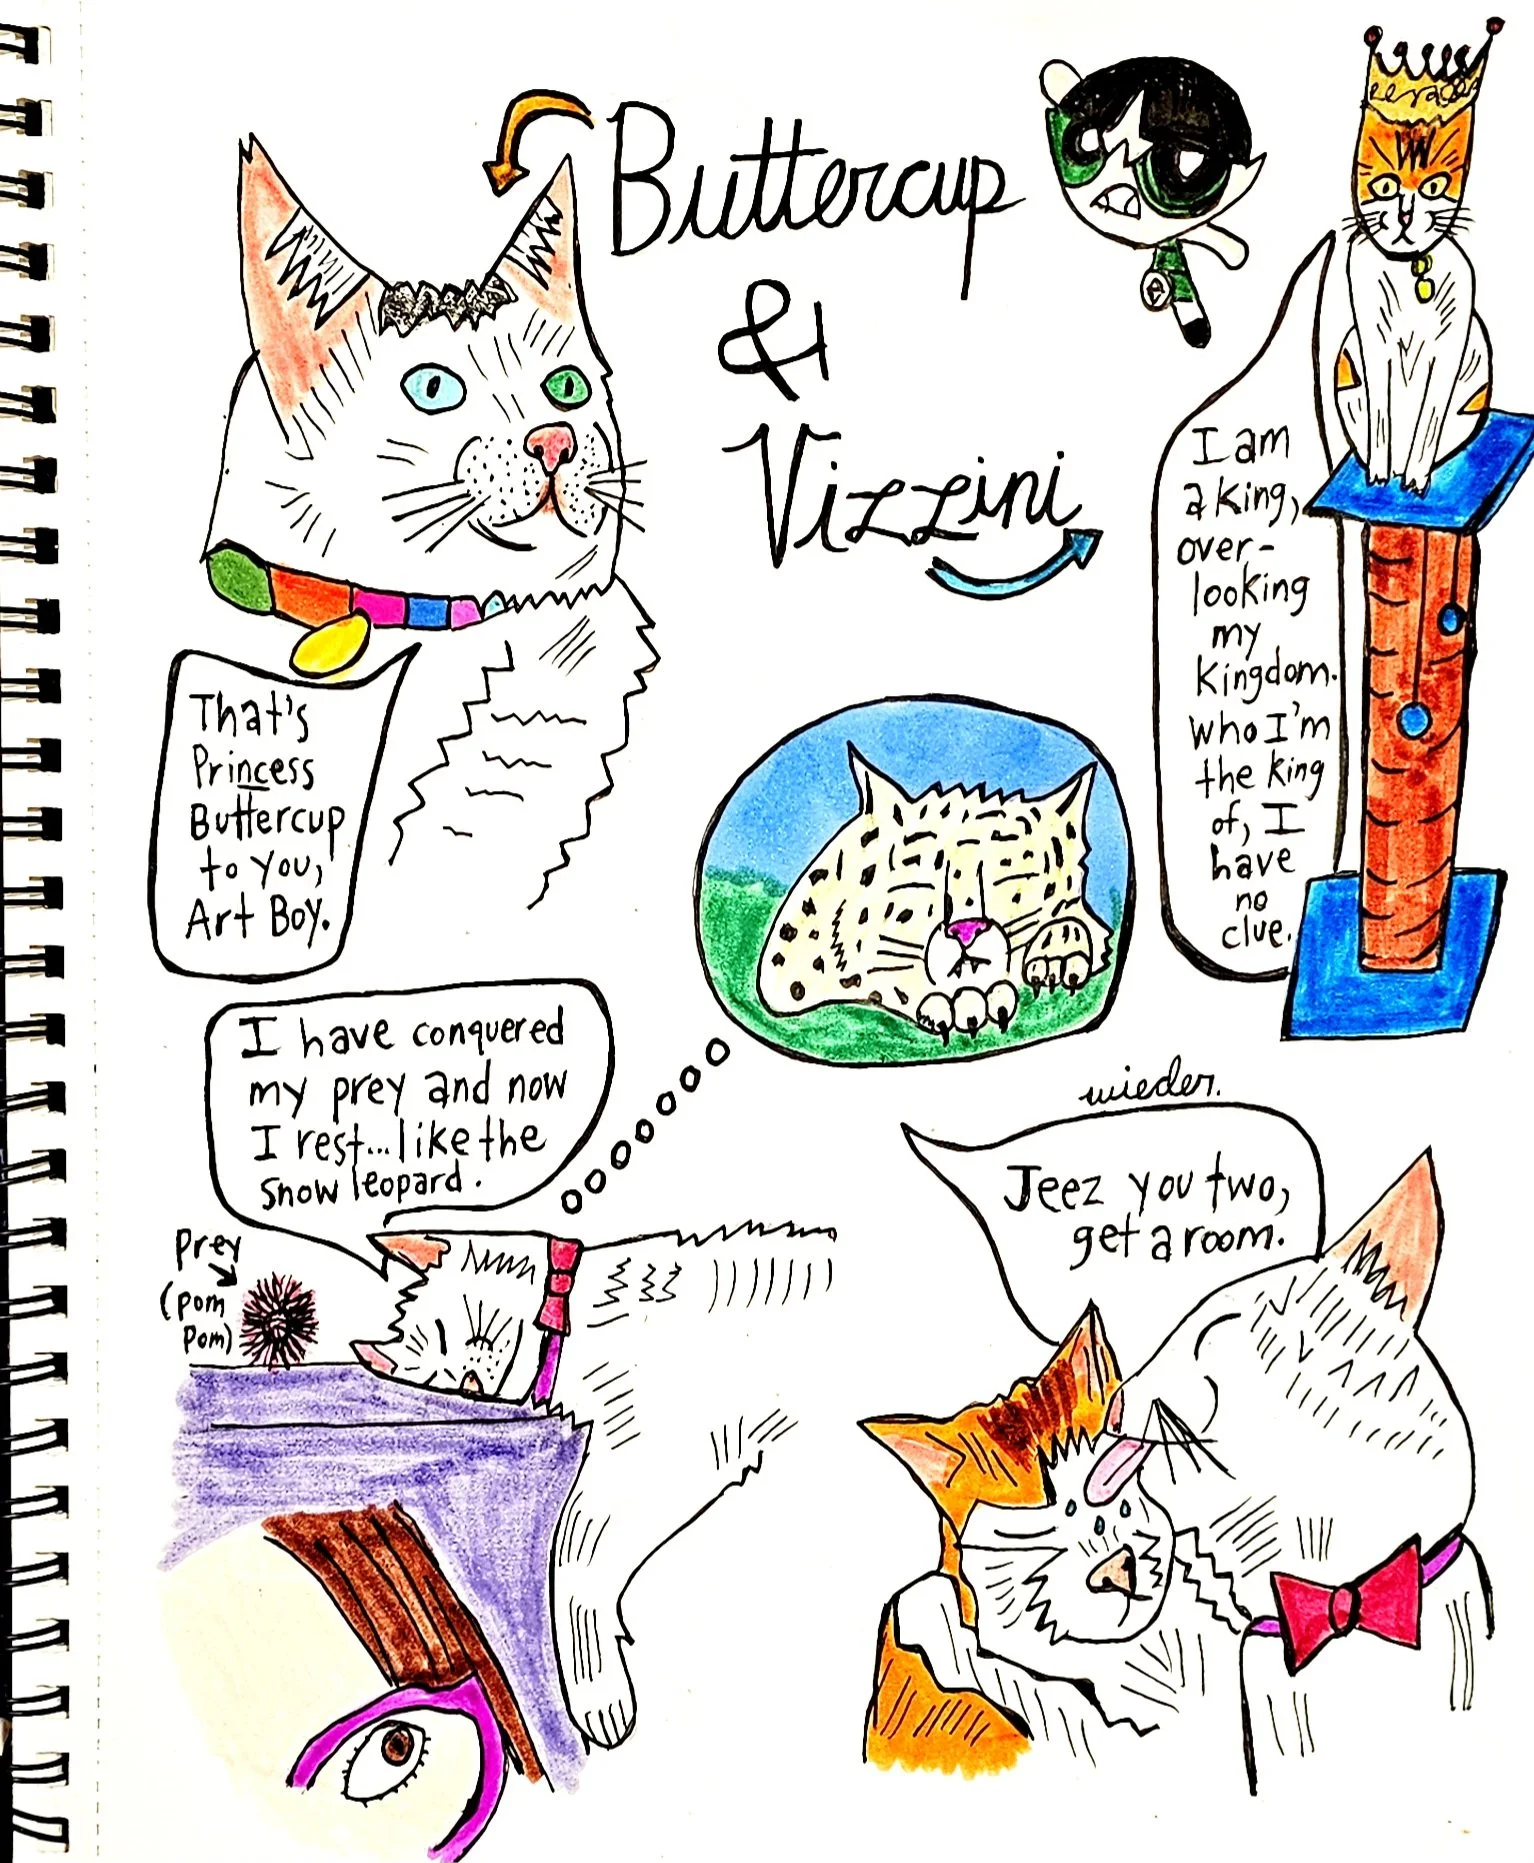 Buttercup
&
Vizzini
That's
Princess
Buttercup
to you,
Art Boy.
I am
a King,
over-
looking
my
Kingdom.
who I'm
the king
of, I
have
no
clue.
I have conquered
my prey and now
I rest...like the
snow leopard.
Prey
(pom
pom)
wieder.
Jeez you two,
get a room.